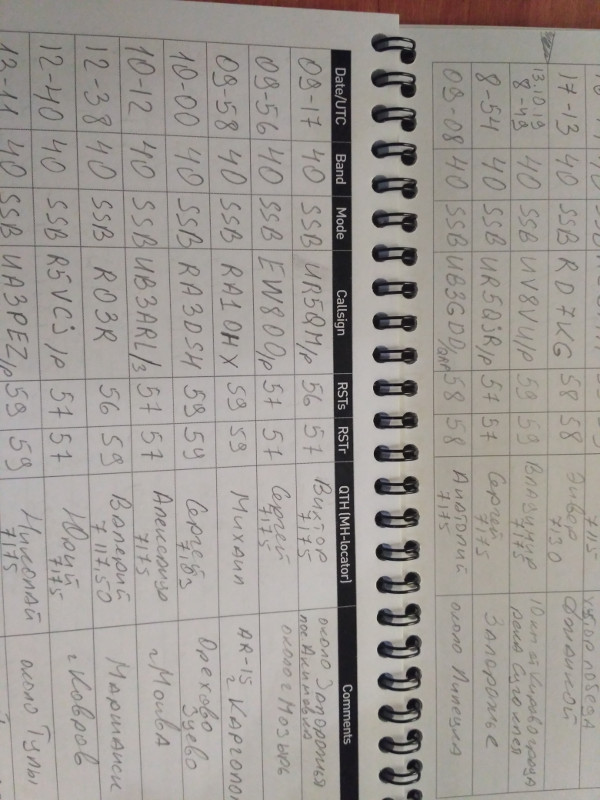 17-13 40 SSB RD7KG 58 58 7130
13.10.19 8-49 40 SSB UV8VU/p 59 59 Владимир
8-54 40 SSB UR5QJR/p 57 57 Сергей 7175 Запорожье
09-08 40 SSB UB3GDD/QRP 58 58 Анатолий 7175 около Липецка
Date/UTC Band Mode Callsign RSTs RSTr QTH (MH-locator) Comments
09-17 40 SSB UR5QM/p 56 57 Виктор 7175 около Запорожья
09-56 40 SSB EW8OO/p 57 57 Сергей 7175 около г Мозырь
09-58 40 SSB RA1OHX 59 59 Михаил AR-15 г Каргополь
10-00 40 SSB RA3DSH 59 59 Сергей 7183 Орехово Зуево
10-12 40 SSB UB3ARL/3 57 57 7175 г Москва
12-38 40 SSB RO3R 56 59 Валерий 7117.50
12-40 40 SSB R5VCJ/p 57 57 Юрий 7175 г Ковров
13-11 40 SSB UA3PEZ/p 59 59 Николай 7175 около Тулы